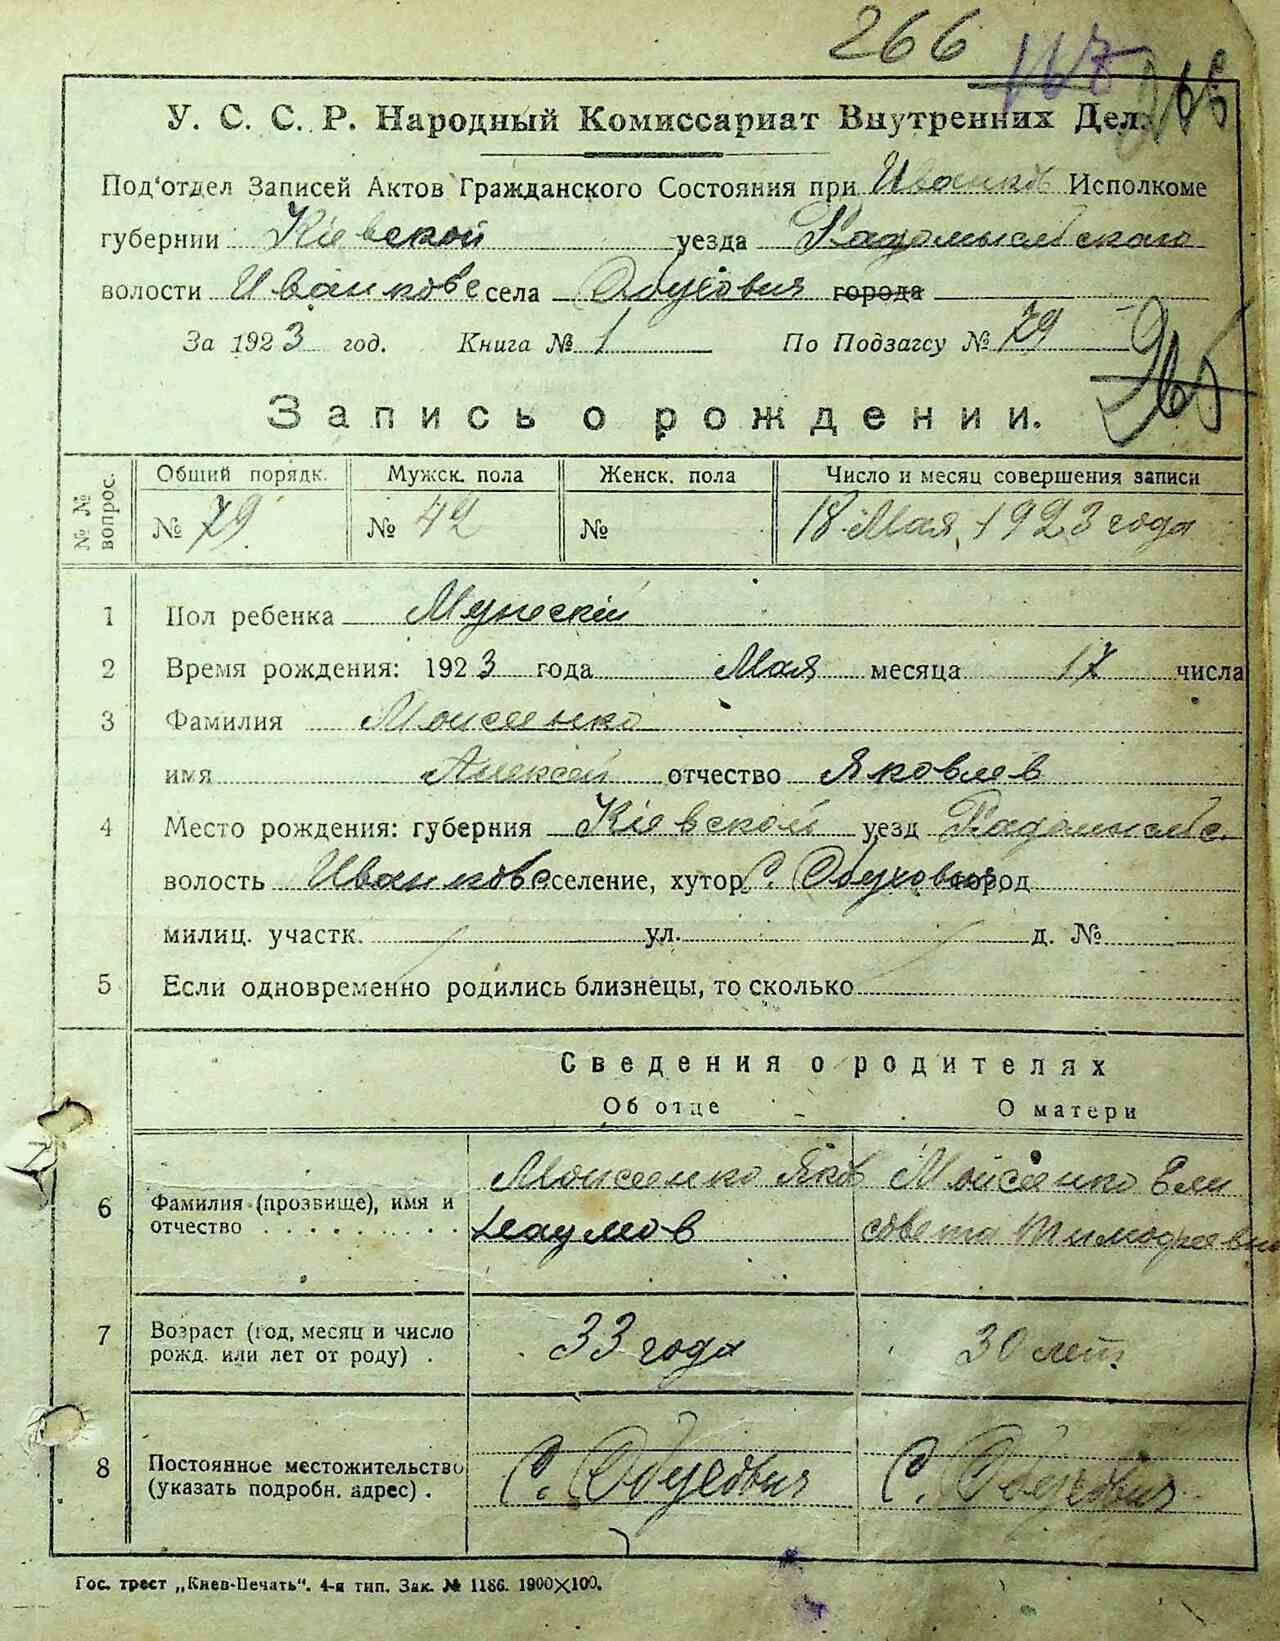 266 167
У. С. С. Р. Народный Комиссариат Внутренних Дел.
Под'отдел Записей Актов Гражданского Состояния при Иванков Исполкоме
губернии Кіевской уезда Радомысльскаго
волости Иванкове села Обуховичи города
За 1923 год. Книга № 1 По Подзагсу № 79
265
Запись о рождении.
№ № вопрос. Общий порядк. Мужск. пола Женск. пола Число и месяц совершения записи
№ 79. № 42 № 18 Мая 1923 года
1 Пол ребенка Мужескій
2 Время рождения: 1923 года Мая месяца 17 числа
3 Фамилия Моисеенко
имя Алексей отчество Яковлев
4 Место рождения: губерния Кіевской уезд Радомысльс.
волость Иванкове селение, хутор С. Обуховичи город
милиц. участк. ул. д. №
5 Если одновременно родились близнецы, то сколько
Сведения о родителях
Об отце О матери
6 Фамилия (прозвище), имя и отчество Моисеенко Яков Наумов Моисеенко Елисавета Тимофеевна
7 Возраст (год, месяц и число рожд. или лет от роду) . 33 года 30 лет
8 Постоянное местожительство (указать подробн. адрес) . С. Обуховичи С. Обуховичи
Гос. трест „Киев-Печать“. 4-я тип. Зак. № 1186. 1900×100.